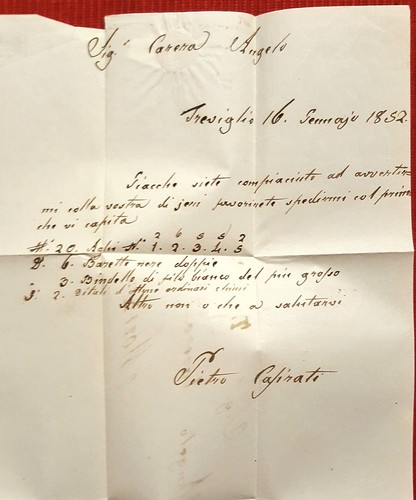 Sigr Carera Angelo
Treviglio 16. Gennajo 1852.
Giacche siete compiaciuto ad avvertir=
mi colla vostra di jeri favorirete spedirmi col primo
che vi capita
2 6 5 5 2
N. 20. Aghi N. 1. 2. 3. 4. 5
D. 6. Barette nere doppie
3. Bindello di filo bianco del più grosso
2. Ditali ordinari
Altro non o che a salutarvi
Pietro Casirati